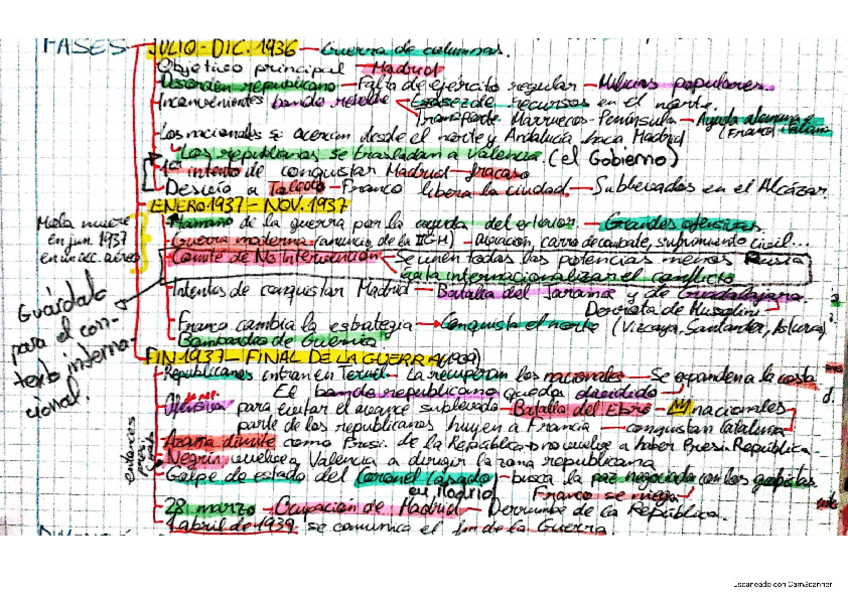 FASES
JULIO - DIC. 1936 - Guerra de columnas.
Objetivo principal - Madrid
Desorden republicano - Falta de ejército regular - Milicias populares.
Inconvenientes bando rebelde - Escasez de recursos en el norte.
Transporte Marruecos - Península - Ayuda alemana e
(Franco)
Los nacionales se acercan desde el norte y Andalucía hacia Madrid
Los republicanos se trasladan a Valencia (el Gobierno)
1er intento de conquistar Madrid - fracaso
Desvío a Toledo - Franco libera la ciudad - Sublevados en el Alcázar
ENERO 1937 - NOV. 1937
Mola muere
en jun. 1937
en un acc. aéreo
de la guerra por la ayuda del exterior - Grandes ofensivas.
Guerra moderna (anuncio de la IIGM) - Aviación, carro de combate, sufrimiento civil...
Comité de No Intervención - Se unen todas las potencias menos Rusia
internacionalizar el conflicto
Guárdalo
para el con-
texto interna-
cional.
Intentos de conquistar Madrid - Batalla del Jarama y de Guadalajara.
Derrota de Mussolini
Franco cambia la estrategia → Conquista el norte (Vizcaya, Santander, Asturias)
Bombardeo de Guernica
FIN 1937 - FINAL DE LA GUERRA (1939)
Republicanos entran en Teruel - La recuperan los nacionales - Se expanden a la costa
El bando republicano queda dividido
Ofensiva para evitar el avance sublevado - Batalla del Ebro - nacionales
parte de los republicanos huyen a Francia - conquistan Cataluña
Azaña dimite como Presi. de la República → no vuelve a haber Presi República
Negrín vuelve a Valencia a dirigir la zona republicana
Golpe de estado del Coronel Casado - busca la paz negociada con los golpistas
en Madrid Franco se niega
28 marzo - Ocupación de Madrid - Derrumbe de la República.
1 abril de 1939 se comunica el fin de la Guerra.
Escaneado con CamScanner